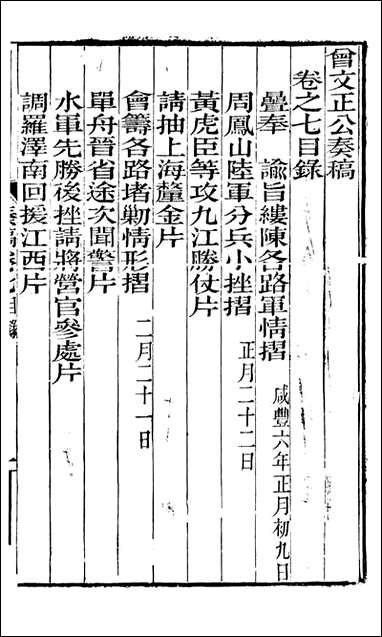 曾文正公奏稿
卷之七目錄
疊奉 諭旨縷陳各路軍情摺 咸豐六年正月初九日
周鳳山陸軍分兵小挫摺 正月二十二日
黃虎臣等攻九江勝仗片
請抽上海釐金片
會籌各路堵勦情形摺 二月二十一日
單舟晉省途次聞警片
水軍先勝後挫請將營官參處片
調羅澤南回援江西片